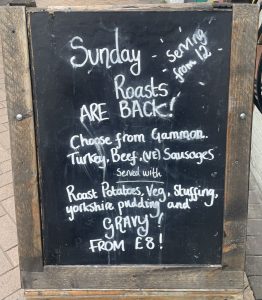 Sunday
serving
from 12
Roasts
ARE BACK!
Choose from Gammon,
Turkey, Beef, (VE) Sausages
Served with
Roast Potatoes, Veg, Stuffing,
yorkshire pudding and
GRAVY!
FROM £8!